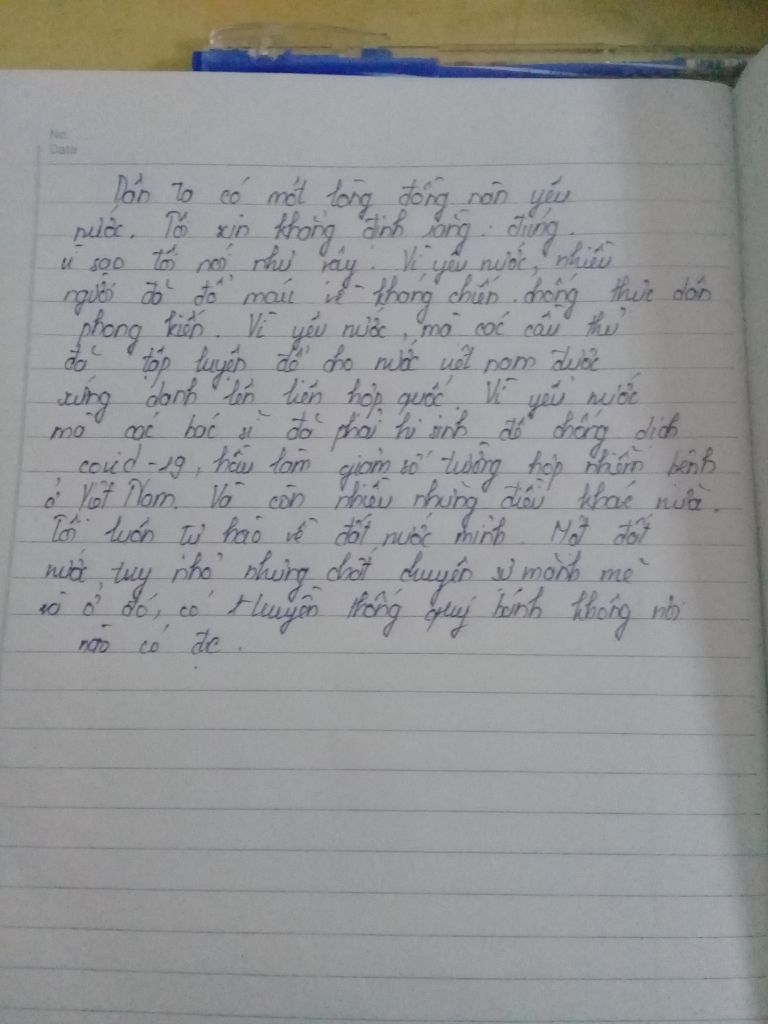 No.
Date
Dân ta có một lòng đồng nàn yêu
nước. Tôi xin khẳng định rằng: đúng.
vì sao tôi nói như vậy. Vì yêu nước, nhiều
người đã đổ máu về kháng chiến chống thực dân
phong kiến. Vì yêu nước, mà các cầu thủ
đã tập luyện để cho nước việt nam được
xứng danh lên liên hợp quốc. Vì yêu nước
mà các bác sĩ đã phải hi sinh để chống dịch
covid-19, hầu làm giảm số trường hợp nhiễm bệnh
ở Việt Nam. Và còn nhiều những điều khác nữa.
Tôi luôn tự hào về đất nước mình. Một đất
nước, tuy nhỏ nhưng chất chuyên sự mạnh mẽ
và ở đó, có truyền thống quý bánh không nơi
nào có đc.